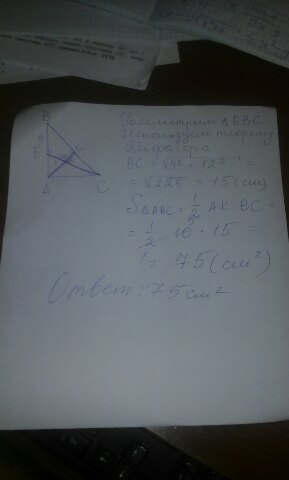 B
9
E
K
A
C
Рассмотрим Δ EBC
Используем теорему
Пифагора
BC = √9² + 12² =
= √225 = 15 (см)
S△ABC = 1/2 AK · BC =
= 1/2 · 10 · 15 =
= 75 (см²)
Ответ: 75 см²